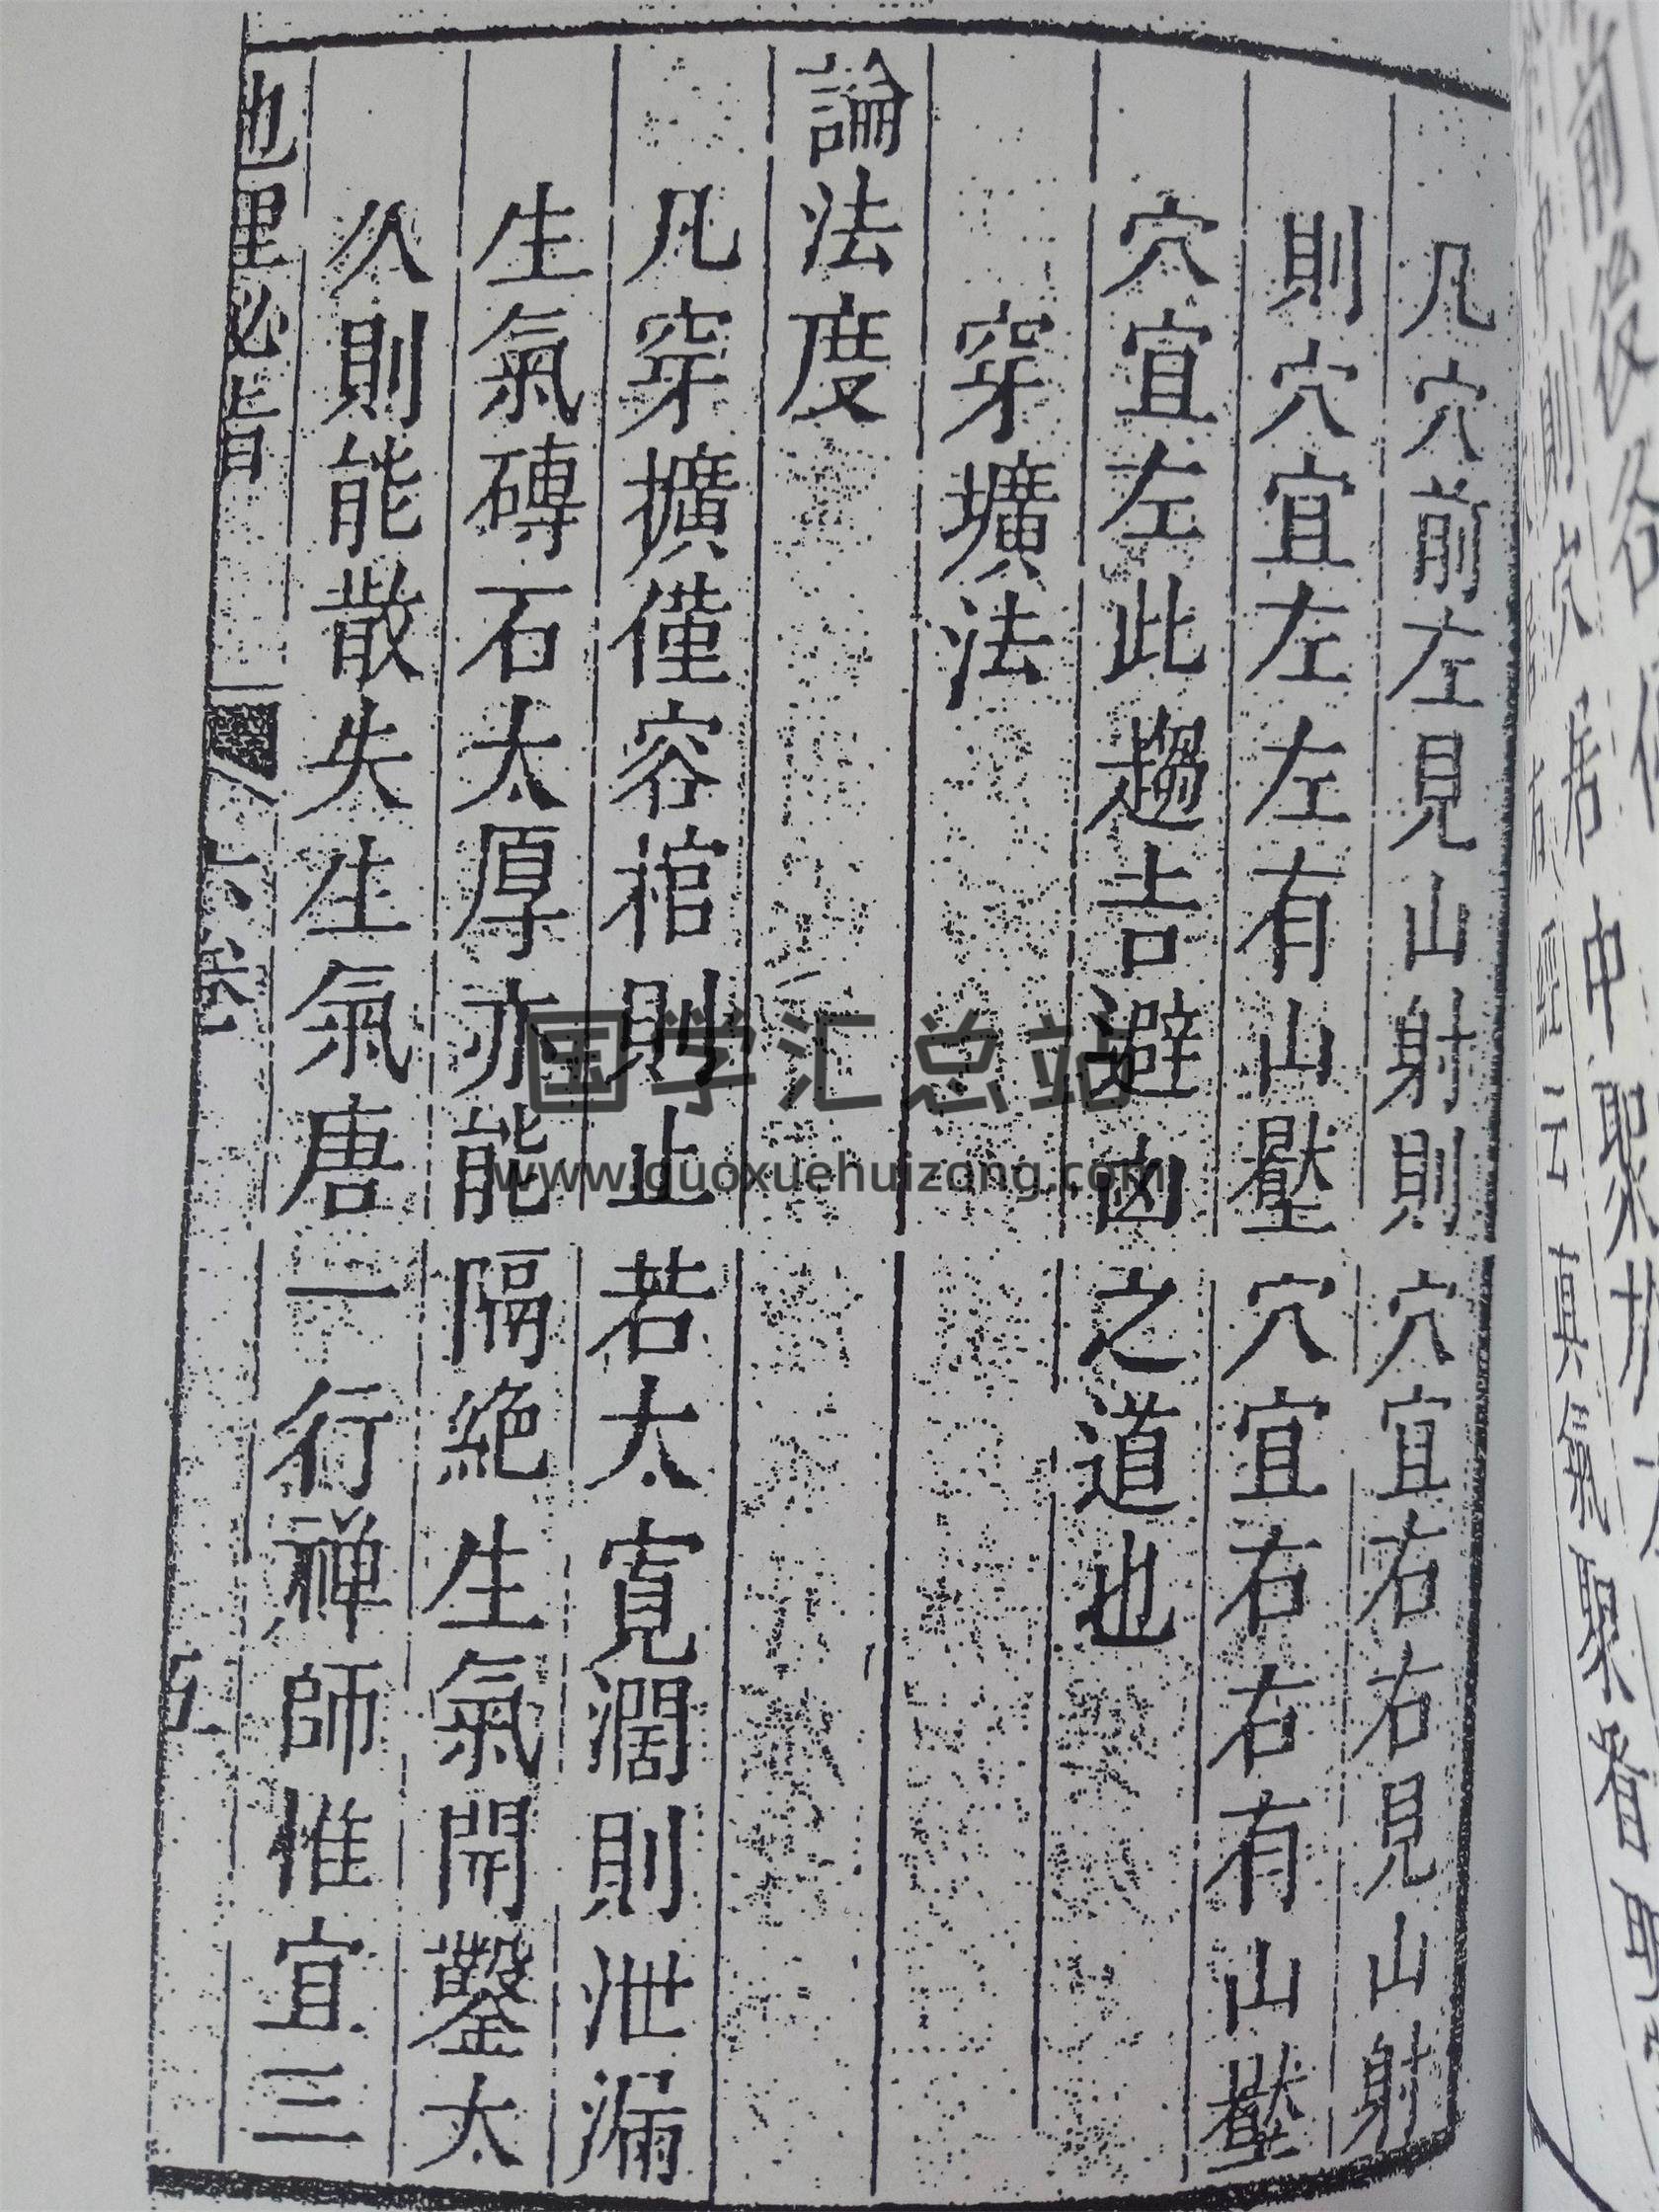 凡穴前左見山射則穴宜右右見山射
則穴宜左左有山壓穴宜右右有山壓
穴宜左此趨吉避凶之道也
穿壙法
論法度
凡穿擴僅容棺則止若太寬濶則泄漏
生氣磚石太厚亦能隔絕生氣開鑿太
久則能散失生氣唐一行禪師惟宜三
地理必旨 六卷
国学汇总站
www.guoxuehuizong.com